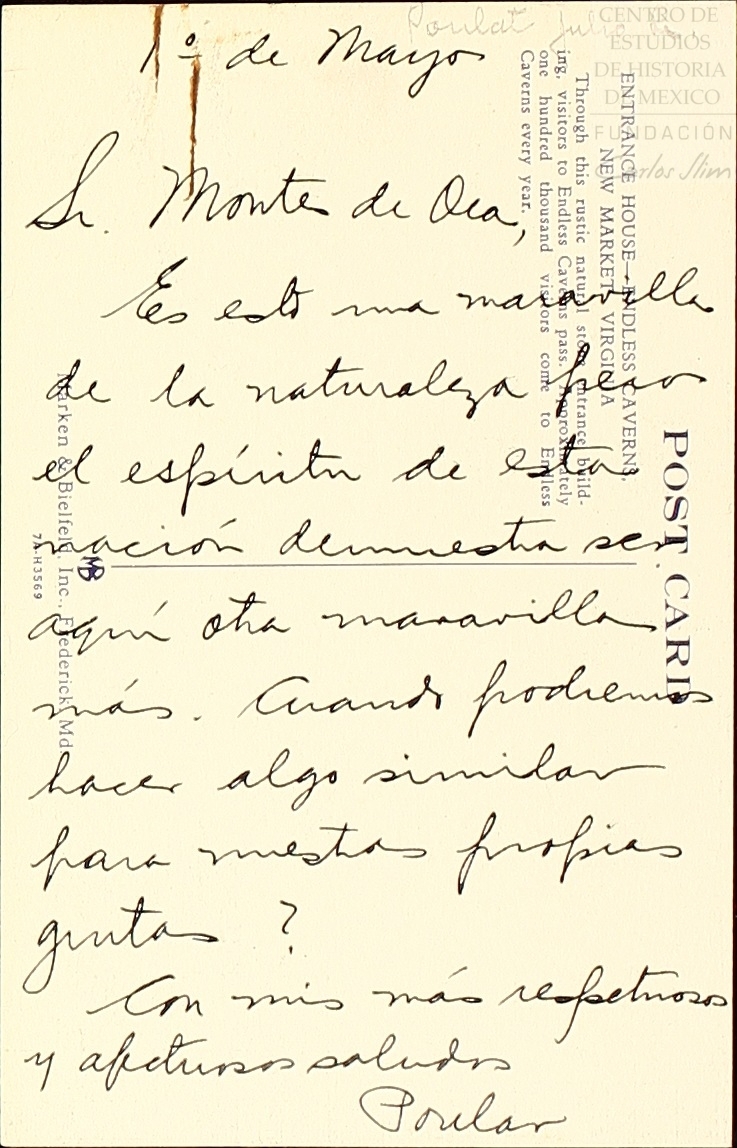 Poulat Julio
CENTRO DE
ESTUDIOS
DE HISTORIA
DE MEXICO
FUNDACIÓN
Carlos Slim
1º de Mayo
Sr. Montes de Oca,
Es esto una maravilla
de la naturaleza pero
el espíritu de esta
nación demuestra ser
aquí otra maravilla
más. Cuando podremos
hacer algo similar
para nuestras propias
grutas?
Con mis más respetuosos
y afectuosos saludos
Poulat
POST CARD
ENTRANCE HOUSE—ENDLESS CAVERNS,
NEW MARKET, VIRGINIA
Through this rustic natural stone entrance build-
ing, visitors to Endless Caverns pass. Approximately
one hundred thousand visitors come to Endless
Caverns every year.
MB
Marken & Bielfeld, Inc., Frederick, Md.
7A-H3569